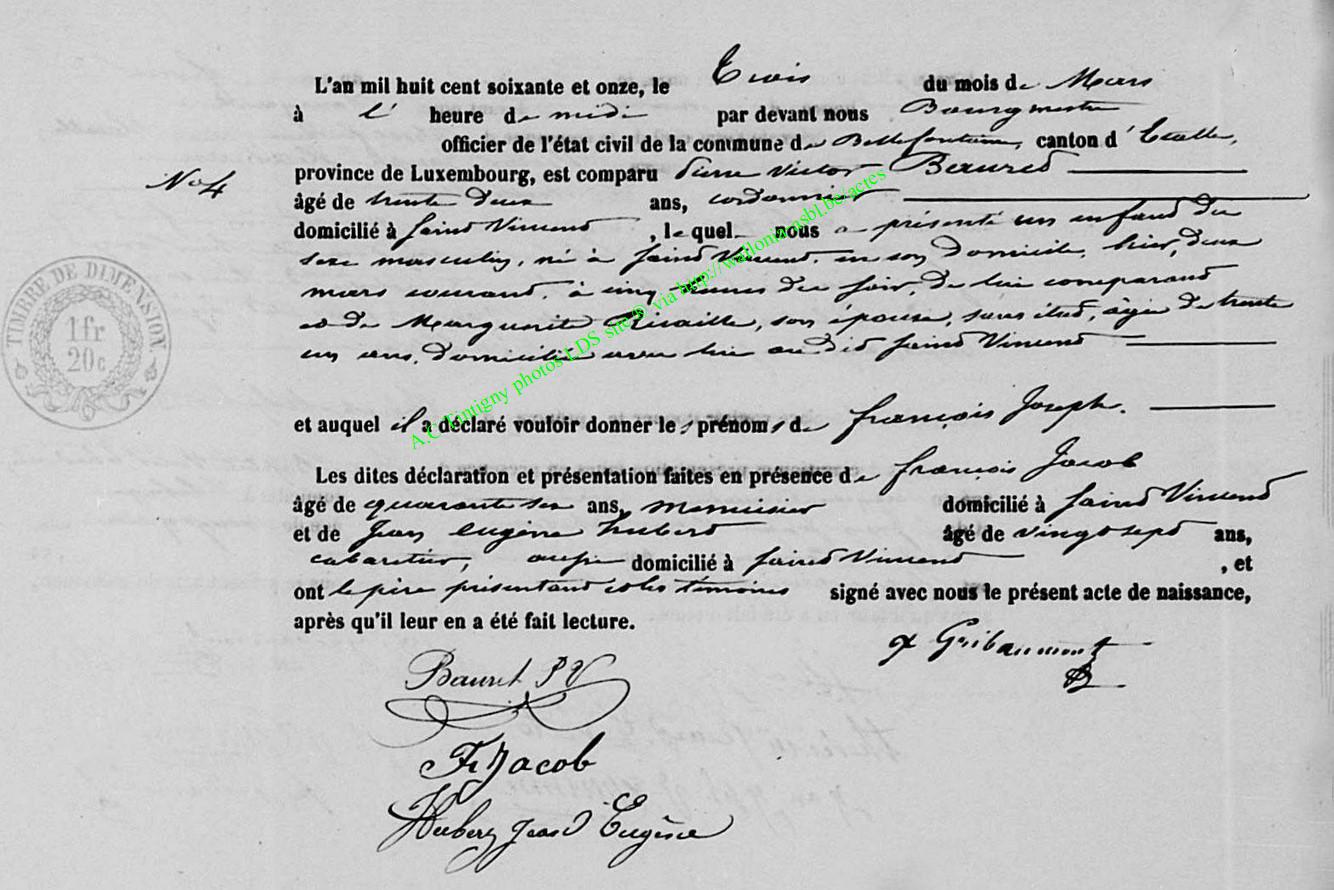 L'an mil huit cent soixante et onze, le Trois du mois de Mars
à l' heure de midi par devant nous Bourgmestre
officier de l'état civil de la commune de Bellefontaine, canton d'Etalle,
N° 4
province de Luxembourg, est comparu Pierre Victor Bauret
âgé de trente deux ans, cordonnier
domicilié à Saint Vincent, le quel nous a présenté un enfant du
sexe masculin, né à Saint Vincent, en son domicile, hier, deux
mars courant, à cinq heures du soir, de lui comparant
et de Marguerite, son épouse, sans état, âgée de trente
un ans, domiciliée avec lui au dit Saint Vincent
TIMBRE DE DIMENSION.
1 fr
20 c
et auquel il a déclaré vouloir donner les prénoms de françois Joseph.
Les dites déclaration et présentation faites en présence de françois Jacob
âgé de quarante ans, menuisier domicilié à Saint Vincent
et de Jean Eugène Hubert âgé de vingt sept ans,
cabaretier, aussi domicilié à Saint Vincent, et
ont le père présentant et les témoins signé avec nous le présent acte de naissance,
après qu'il leur en a été fait lecture.
Gribaumont
Bauret P V
Fr Jacob
Hubert Jean Eugène
A.C. Tintigny photos LDS site © via http://wallonia.asbl.be/actes